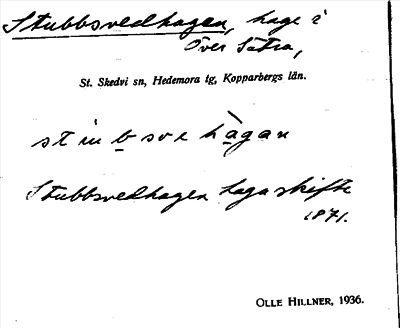 Stubbsvedhagen, hage i
Över Sätra,
St. Skedvi sn, Hedemora tg, Kopparbergs län.
Stubbsvedhagen laga skifte
1871.
OLLE HILLNER, 1936.